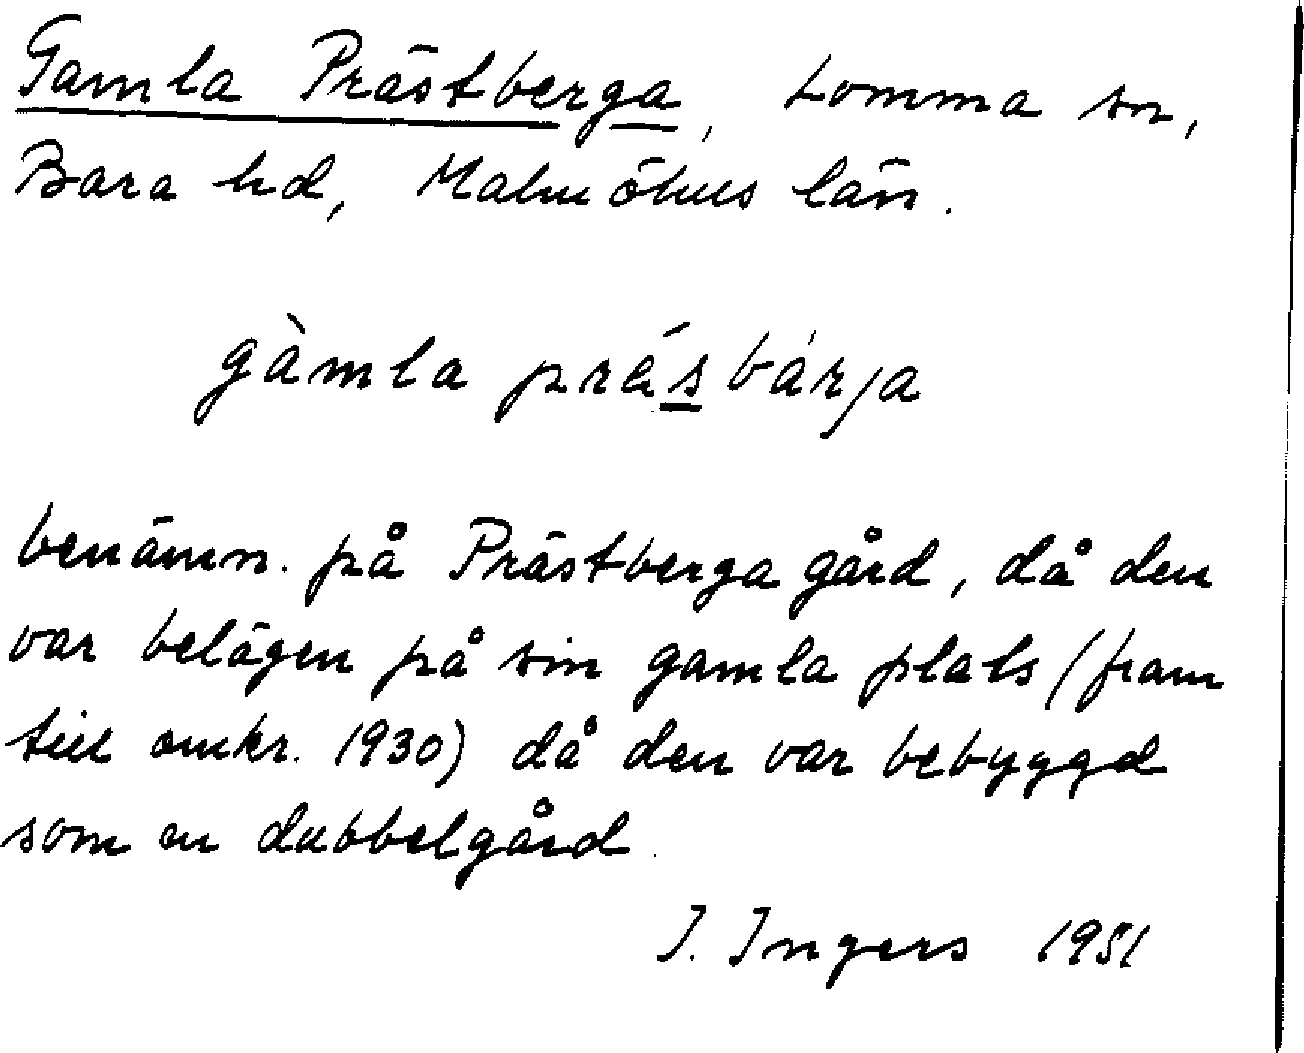 Gamla Prästberga, Lomma sn,
Bara hd, Malmöhus län.
gàmla prásbárja
benämn. på Prästberga gård, då den
var belägen på sin gamla plats (fram
till omkr. 1930) då den var bebyggd
som en dubbelgård.
I. Ingers 1951